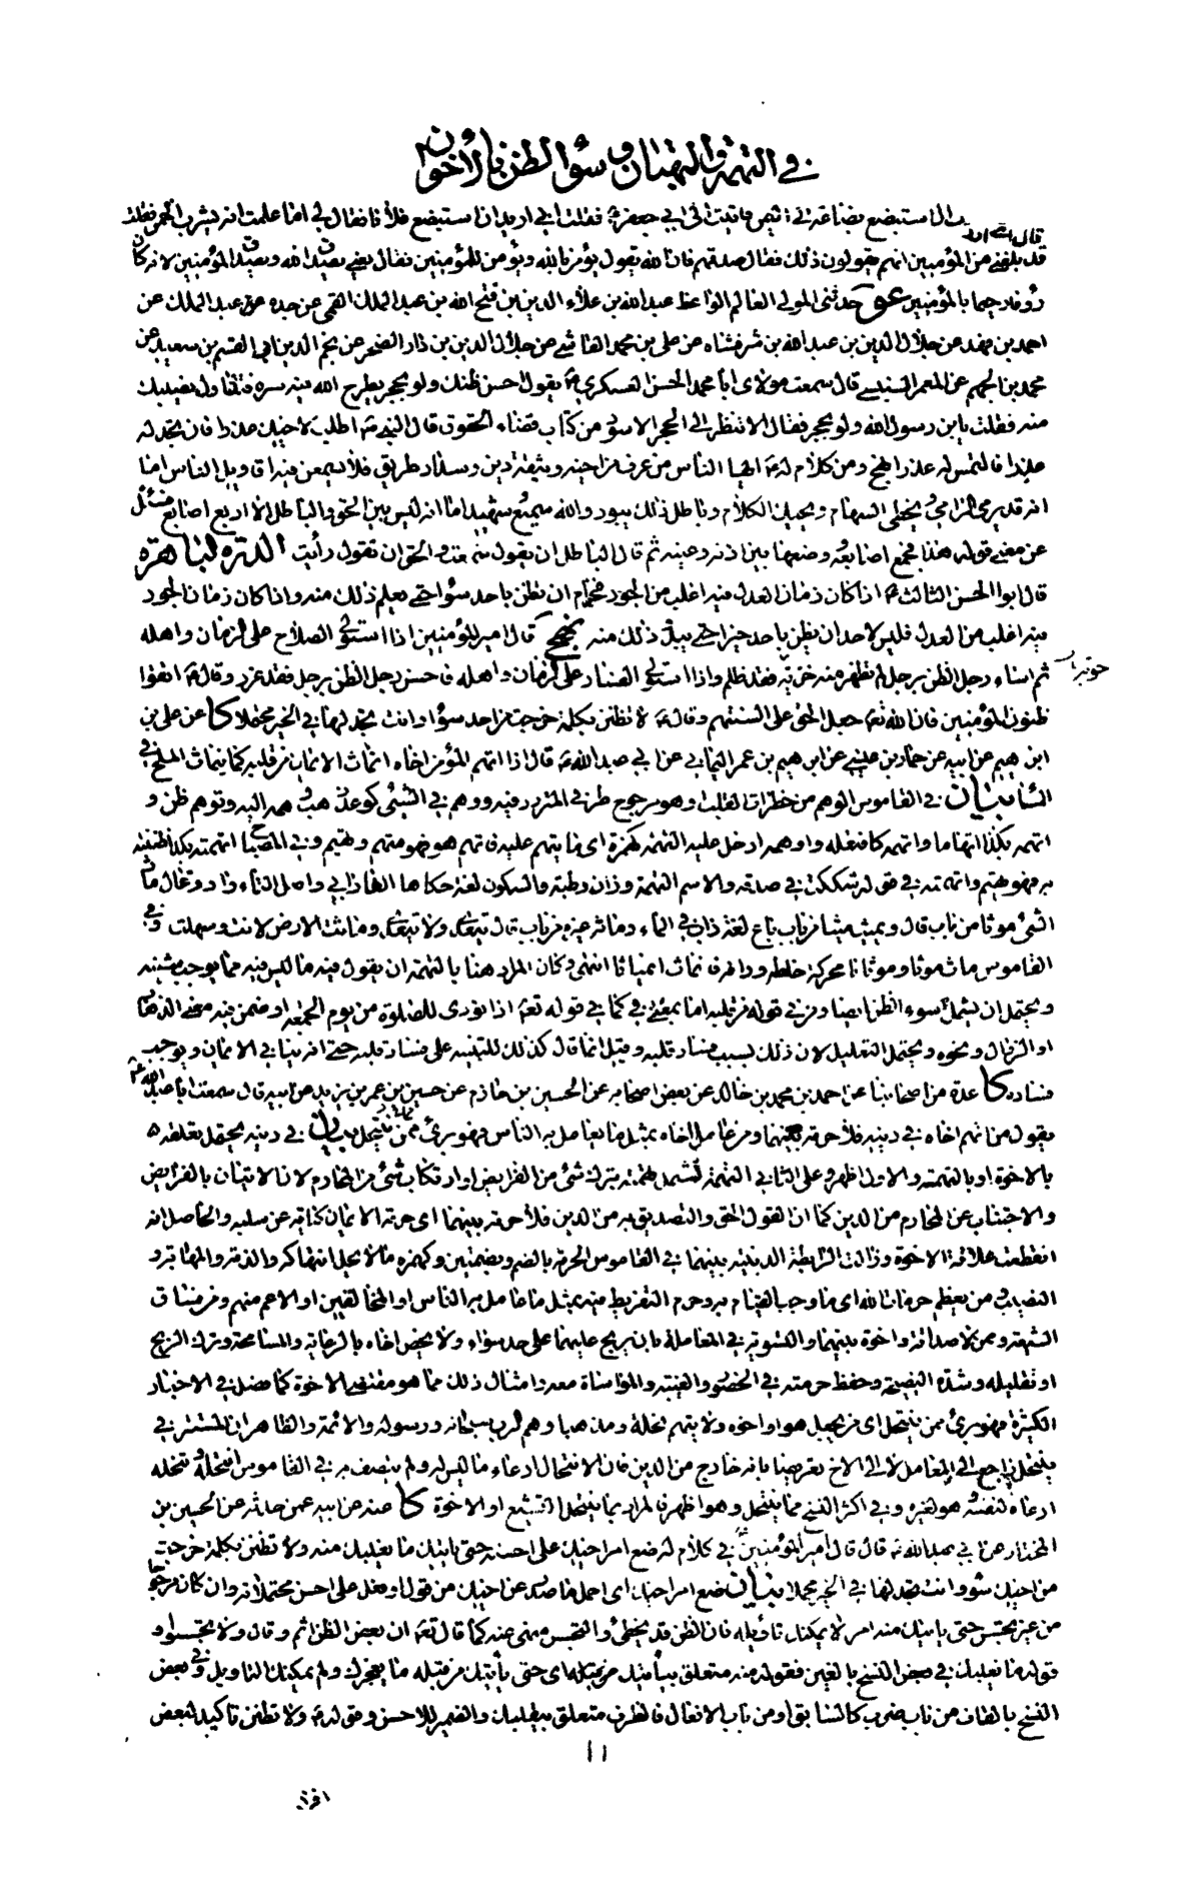 في التهمة والبهتان وسوء الظن بالاخوان
استبضع بضاعة الى اليمن فاتيت الى ابي جعفر ع فقلت اني اريد ان استبضع فلانا فقال لي اما علمت انه يشرب الخمر فقلت
قد بلغني من المؤمنين انهم يقولون ذلك فقال صدقهم فان الله يقول يؤمن بالله ويؤمن للمؤمنين فقال يعني يصدق الله ويصدق المؤمنين لانه كان
رؤفا رحيما بالمؤمنين عو حدثني المولى العالم الواعظ عبد الله بن علاء الدين بن فتح الله بن عبد الملك القمي عن جده عبد الملك عن
احمد بن فهد عن جلال الدين بن عبد الله بن شرفشاه عن علي بن محمد القاشي عن جلال الدين بن دار الصخر عن نجم الدين ابي القسم بن سعيد عن
محمد بن الجهم عن المعمر السنبسي قال سمعت مولاي ابا محمد الحسن العسكري ع يقول احسن ظنك ولو بحجر يطرح الله فيه سره فتتناول نصيبك
منه فقلت يابن رسول الله ولو بحجر فقال الا تنظر الى الحجر الاسود من كتاب قضاء الحقوق قال النبي ص اطلب لاخيك عذرا فان لم تجد له
عذرا فالتمس له عذرا نهج ومن كلام له ع ايها الناس من عرف من اخيه وثيقة دين وسداد طريق فلا يسمعن فيه اقاويل الناس اما
انه قد يرمي الرامي ويخطي السهام ويحيل الكلام وباطل ذلك يبور والله سميع وشهيد اما انه ليس بين الحق والباطل الا اربع اصابع فسئل
عن معنى قوله هذا فجمع اصابعه ووضعها بين اذنه وعينه ثم قال الباطل ان تقول سمعت والحق ان تقول رأيت الدرة الباهرة
قال ابو الحسن الثالث ع اذا كان زمان العدل فيه اغلب من الجور فحرام ان تظن باحد سوءا حتى يعلم ذلك منه واذا كان زمان الجور
فيه اغلب من العدل فليس لاحد ان يظن باحد خيرا حتى يبدو ذلك منه نهج قال امير المؤمنين اذا استولى الصلاح على الزمان واهله
ثم اساء رجل الظن برجل لم تظهر منه خزية فقد ظلم واذا استولى الفساد على الزمان واهله فاحسن رجل الظن برجل فقد غرر وقال ع اتقوا
ظنون المؤمنين فان الله تع جعل الحق على السنتهم وقال ع لا تظنن بكلمة خرجت من احد سوءا وانت تجد لها في الخير محتملا كا عن علي بن
ابرهيم عن ابيه عن حماد بن عيسى عن ابرهيم بن عمر اليماني عن ابي عبد الله ع قال اذا اتهم المؤمن اخاه انماث الايمان من قلبه كما ينماث الملح في
الماء بيان في القاموس الوهم من خطرات القلب وهو مرجوح طرفي المتردد فيه ووهم في الشيء كوعد ذهب وهمه اليه وتوهم ظن و
اتهمه بكذا اتهاما واتهمه كافتعله واوهمه ادخل عليه التهمة كهمزة اي ما يتهم عليه فاتهم هو فهو متهم وتهيم وفي المصباح اتهمته بكذا ظننته
به فهو تهيم واتهمته في قوله شككت في صدقه والاسم التهمة وزان رطبة والسكون لغة حكاها الفارابي واصل التاء واو وقال ماث
الشيء موثا من باب قال ويميث ميثا من باب باع لغة ذاب في الماء وماثه غيره من باب قال يتعدى ولا يتعدى وماثت الارض لانت وسهلت وفي
القاموس ماث موثا وموثانا محركة خلطه ودافه فانماث انمياثا انتهى وكان المراد هنا بالتهمة ان يقول فيه ما ليس فيه مما يوجب شينه
ويحتمل ان يشمل سوء الظن ايضا ومن في قوله من قلبه اما بمعنى في كما في قوله تع اذا نودي للصلوة من يوم الجمعة او ضمن فيه معنى الذهاب
او الزوال ونحوه ويحتمل التعليل لان ذلك بسبب فساد قلبه وقيل انما قال كذلك للتنبيه على فساد قلبه حتى انه ينافي الايمان ويوجب
فساده كا عدة من اصحابنا عن احمد بن محمد بن خالد عن بعض اصحابه عن الحسين بن حازم عن حسين بن عمر بن يزيد عن ابيه قال سمعت ابا عبد الله ع
يقول من اتهم اخاه في دينه فلا حرمة بينهما ومن عامل اخاه بمثل ما يعامل به الناس فهو بريء ممن ينتحل بيان في دينه يحتمل تعلقه
بالاخوة او بالتهمة والاول اظهر وعلى الثاني التهمة تشمل تهمته بترك شيء من الفرايض او ارتكاب شيء من المحارم لان الاتيان بالفرايض
والاجتناب عن المحارم من الدين كما ان القول الحق والتصديق به من الدين فلا حرمة بينهما اي حرمة الايمان كناية عن سلبه والحاصل انه
انقطعت علاقة الاخوة وزالت الرابطة الدينية بينهما في القاموس الحرمة بالضم وبضمتين وكهمزة ما لا يحل انتهاكه والذمة والمهابة و
النصيب ومن يعظم حرمات الله اي ما وجب القيام به وحرم التفريط فيه بمثل ما عامل به الناس او المخالفين او الاعم منهم ومن فساق
الشيعة وممن لا صداقة واخوة بينهما والتسوية في المعاملة بان يربح عليهما على حد سواء ولا يخص اخاه بالرعاية والمسامحة وترك الربح
او تقليله وشدة النصيحة وحفظ حرمته في الحضور والغيبة والمواساة معه وامثال ذلك مما هو مقتضى الاخوة كما فصل في الاخبار
الكثيرة فهو بريء ممن ينتحل اي من يجعل هو او اخوه ولا يتهم نحلة ومذهبا وهم الرب سبحانه ورسوله والائمة والظاهر ان المستتر في
ينتحل راجع الى المعامل لا الى الاخ تعريضا بانه خارج من الدين فان الانتحال ادعاء ما ليس له ولم يتصف به في القاموس انتحله وتنحله
ادعاه لنفسه وهو لغيره وفي اكثر النسخ مما ينتحل وهو اظهر فالمراد بما ينتحل التشيع او الاخوة كا عنه عن ابيه عمن حدثه عن الحسين بن
المختار عن ابي عبد الله ع قال قال امير المؤمنين ع في كلام له ضع امر اخيك على احسنه حتى ياتيك ما يغلبك منه ولا تظنن بكلمة خرجت
من اخيك سوءا وانت تجد لها في الخير محملا بيان ضع امر اخيك اي احمل ما صدر عن اخيك من قول او فعل على احسن محتملاته وان كان مرجوحا
من غير تجسس حتى ياتيك منه امر لا يمكنك تأويله فان الظن قد يخطئ والتجسس منهي عنه كما قال تع ان بعض الظن اثم وقال ولا تجسسوا و
قوله ما يغلبك في بعض النسخ بالغين فقوله منه متعلق بيأتيك اي حتى يأتيك من قبله ما يعجزك ولم يمكنك التاويل وفي بعض
النسخ بالقاف من باب ضرب كالسابق او من باب الافعال فالظرف متعلق بيقلبك والضمير للاحسن وقوله ع ولا تظنن تاكيد لبعض
١١